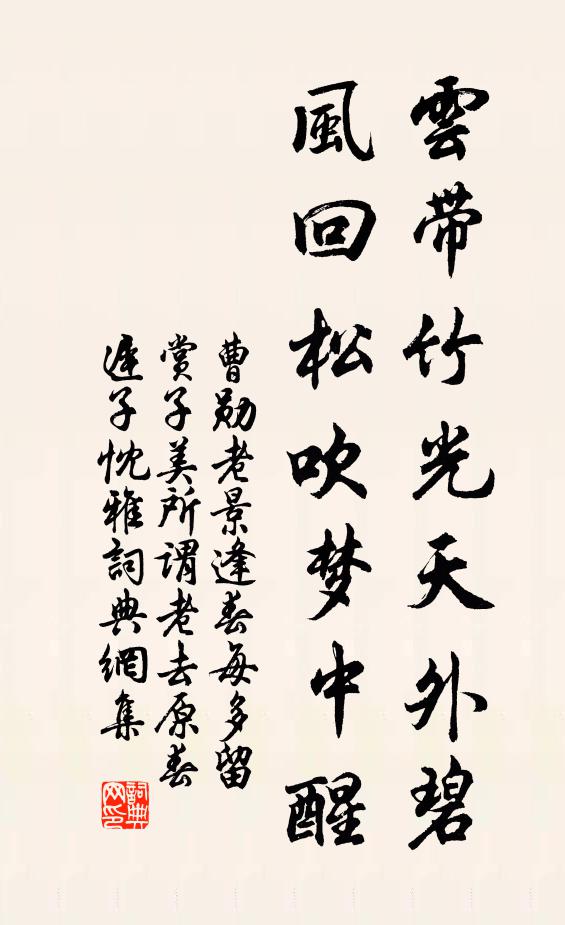 雲帶竹光天外碧
風回松吹梦中醒
曹勋老景逢春每多留
赏子美所谓老去原春
遲子忱雅詞典網集
詞典网印